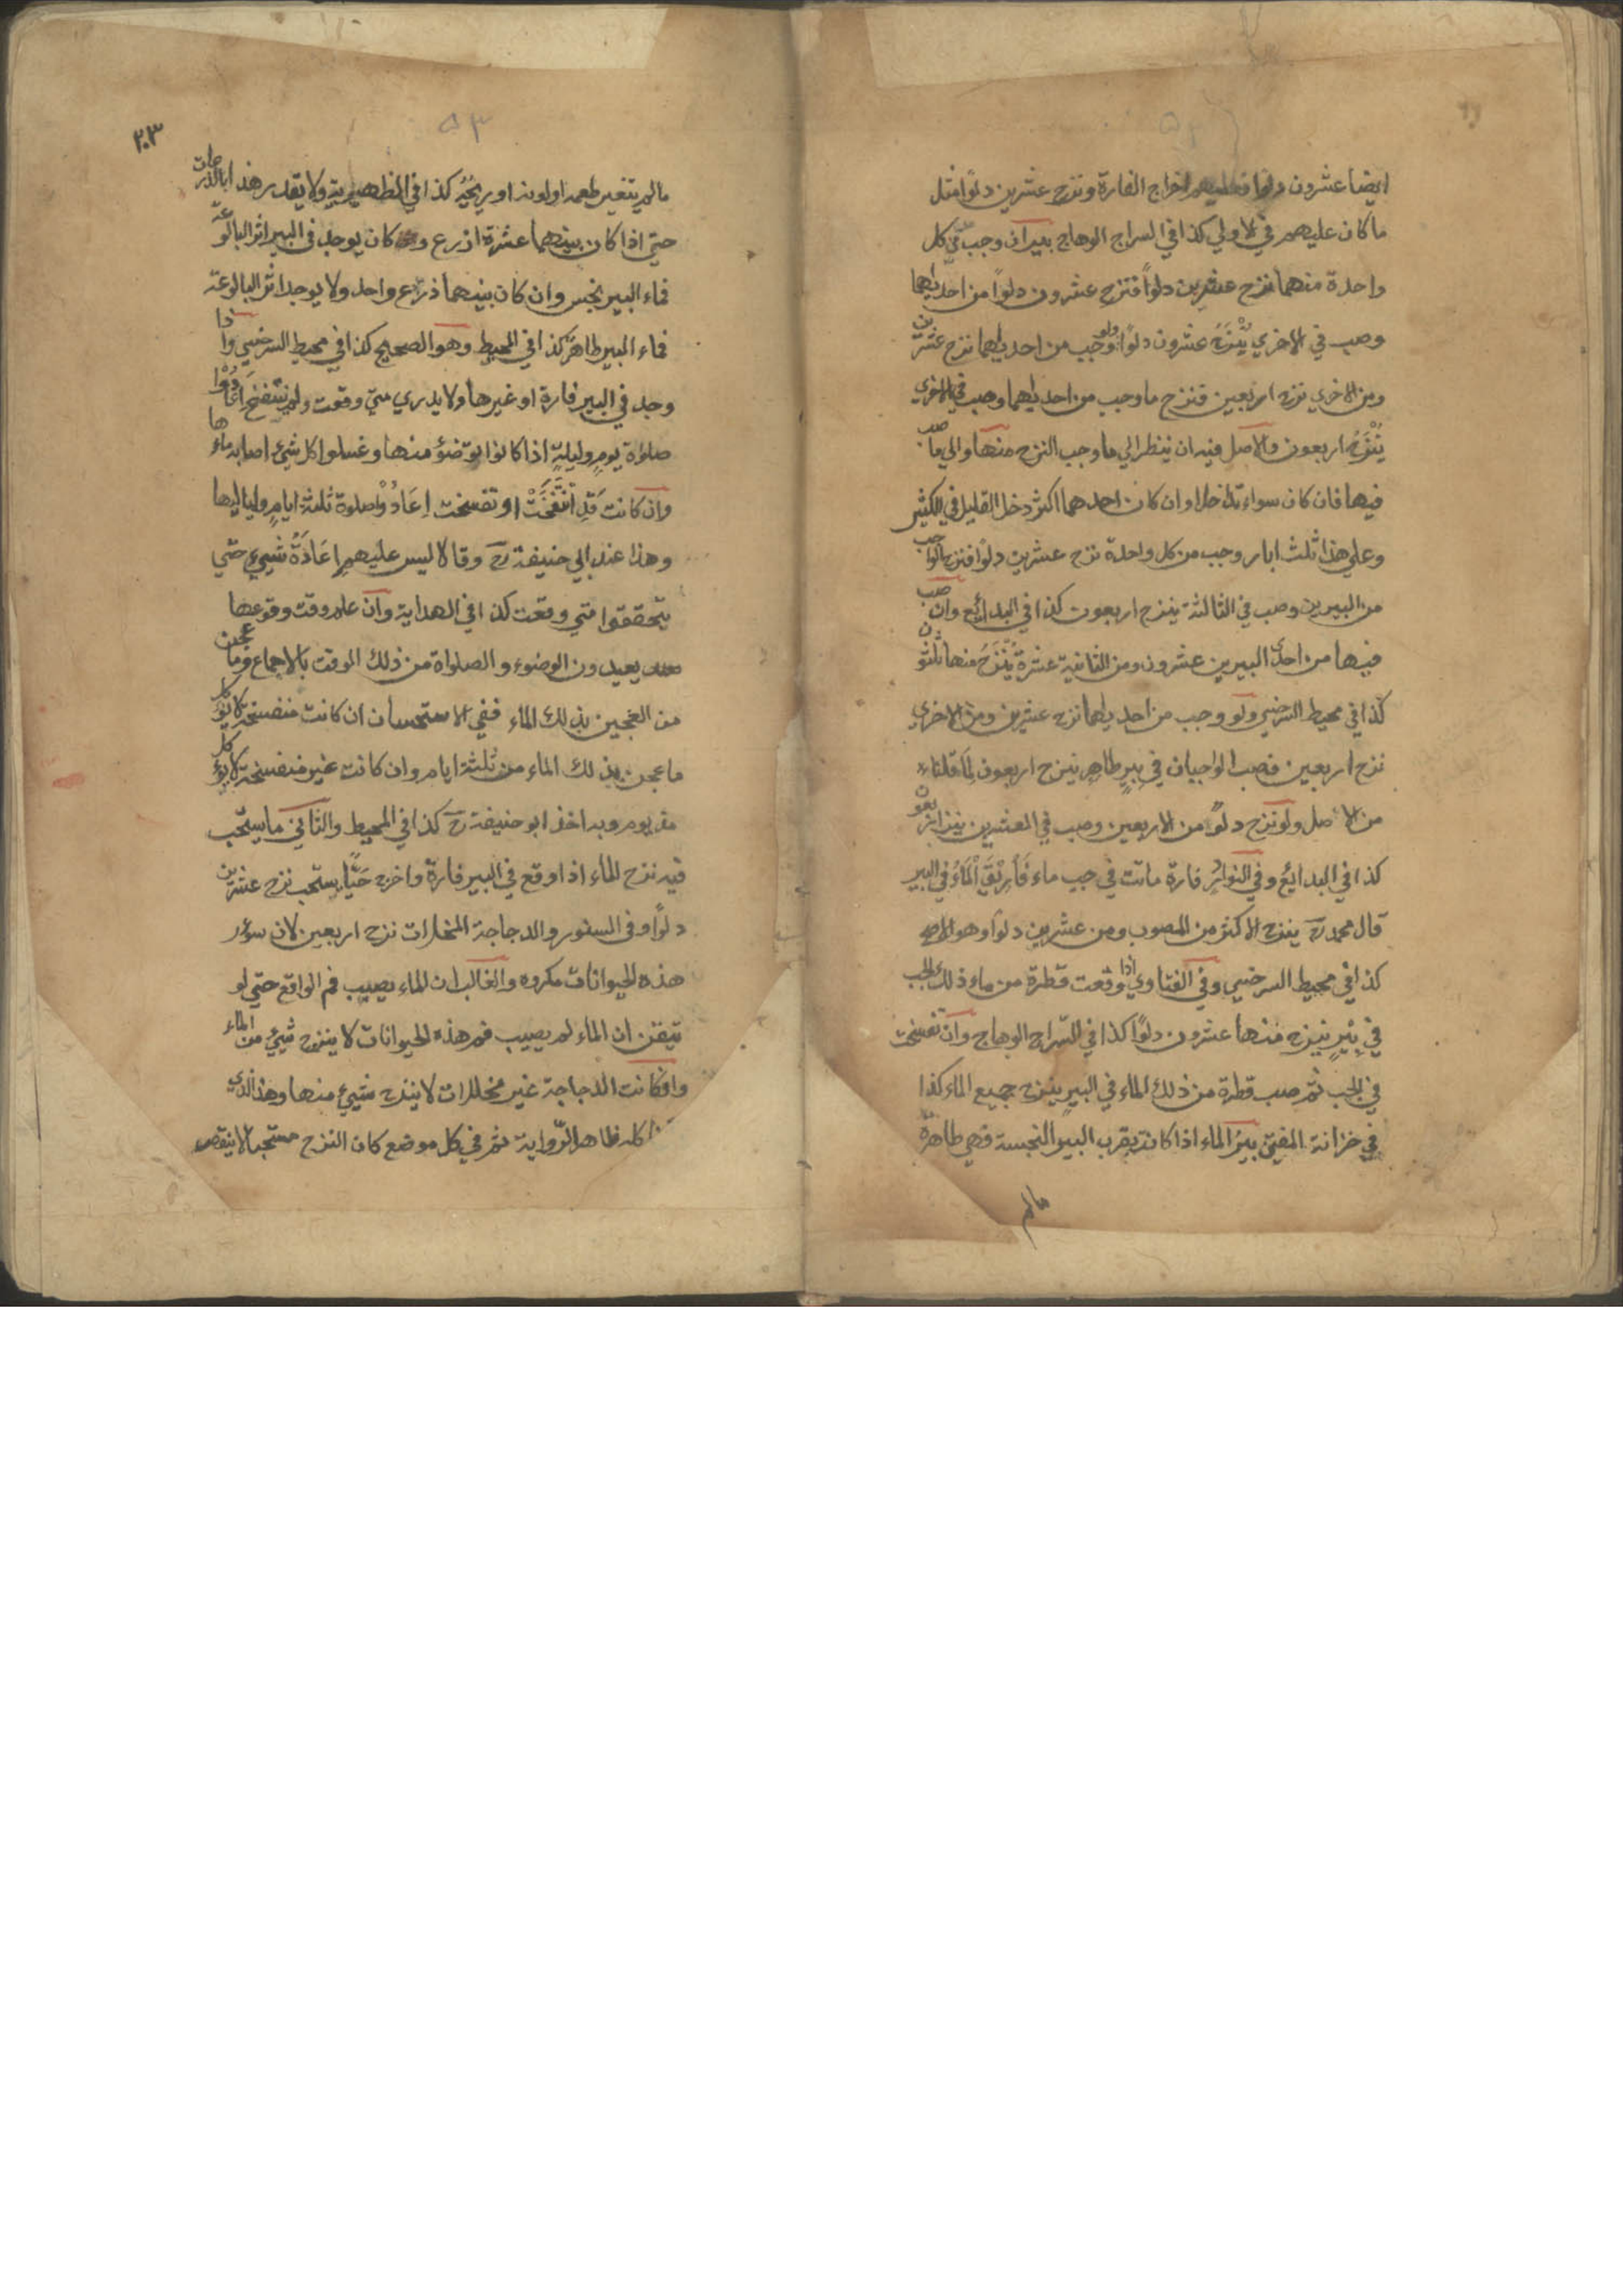 ايضا عشرون دلوا فعليهم اخراج الفارة ونزح عشرين دلوًا مثل
ما كان عليهم في الاولي كذا في السراج الوهاج بيران وجب في كل
واحدة منهما نزح عشرين دلوًا فنزح عشرون دلوًا من احديهما
وصب في الاخري يُنْزَحُ عشرون دلوًا ولو وجب من احديهما نزح عشرين
ومن الاخري نزح اربعين فنزح ما وجب من احديهما وصب في الاخري
يُنْزَحُ اربعون والاصل فيه ان ينظر الي ما وجب النزح منها والي ما صب
فيها فان كان سواء تداخلا وان كان احدهما اكثر دخل القليل في الكثير
وعلي هذا ثلث ابار وجب من كل واحدة نزح عشرين دلوًا فنزح الواجب
من البيرين وصب في الثالثة ينزح اربعون كذا في البدائع وان صب
فيها من احدى البيرين عشرون ومن الثانية عشرة يُنْزَحُ منها ثلثون
كذا في محيط السرخسي ولو وجب من احديهما نزح عشرين ومن الاخري
نزح اربعين فصب الواجبان في بيرٍ طاهرٍ ينزح اربعون لما قلناه
من الاصل ولو نزح دلوًا من الاربعين وصب في العشرين ينزح اربعون
كذا في البدايع وفي النوادر فارة ماتت في جب ماء فَأُرِيْقَ الْمَاءُ في البير
قال محمد رح ينزح الاكثر من المصبوب ومن عشرين دلوًا وهو الاصح
كذا في محيط السرخسي وفي الفتاوي اذا وقعت قطرة من ماء ذلك الجب
في بئرٍ ينزح منها عشرون دلوًا كذا في السّراج الوهاج وان تفسخت
في الجب ثم صب قطرة من ذلك الماء في البير ينزح جميع الماء كذا
في خزانة المفتي بير الماء اذا كانت بقرب البير النجسة فهي طاهرة
مالم
٢٠٣
٥٣
مالم يتغير طعمه اولونه او ريحُهُ كذا في الظهيرية ولا يقدر هذا بالذرعات
حتي اذا كان بينهما عشرة اذرع وكان يوجد في البير اثر البالوعة
فماء البير نجس وان كان بينهما ذراع واحد ولا يوجد اثر البالوعة
فماء البير طاهر كذا في المحيط وهو الصحيح كذا في محيط السرخسي واذا
وجد في البير فارة او غيرها ولا يدري متي وقعت ولم تنتفخ اَعَادُوْا
صلوٰة يومٍ وليلةٍ اذا كانوا توضؤ منها وغسلوا كل شيء اصابه ماءها
وان كانت قَدِ انْتَفَخَتْ او تفسخت اِعَادُوْا صلوة ثلثة ايامٍ ولياليها
وهذا عند ابي حنيفة رح وقالا ليس عليهم اِعَادَةُ شيئ حتي
يتحققوا متي وقعت كذا في الهداية وان علم وقت وقوعها
يعيدون الوضوء والصلواة من ذلك الوقت بالاجماع وما عجن
من العجين بذلك الماء ففي الاستحسان ان كانت منفسخة لا يؤكل
ما عجن بذلك الماء من ثلثة ايام وان كانت غير منفسخة لا يؤكل
مذ يوم وبه اخذ ابو حنيفة رح كذا في المحيط والثاني ما يستحب
فيه نزح الماء اذا وقع في البير فارة واخرج حَيًّا يستحب نزح عشرين
دلوًا وفي السنور والدجاجة المخلات نزح اربعين لان سؤر
هذه الحيوانات مكروه والغالب ان الماء يصيب فم الواقع حتي لو
تيقن ان الماء لم يصيب فم هذه الحيوانات لا ينزح شيئ من الماء
وان كانت الدجاجة غير مخلات لا ينزح شيئ منها وهذا الذي
كله ظاهر الرّواية ثم في كل موضع كان النزح مستحبا لا ينقص